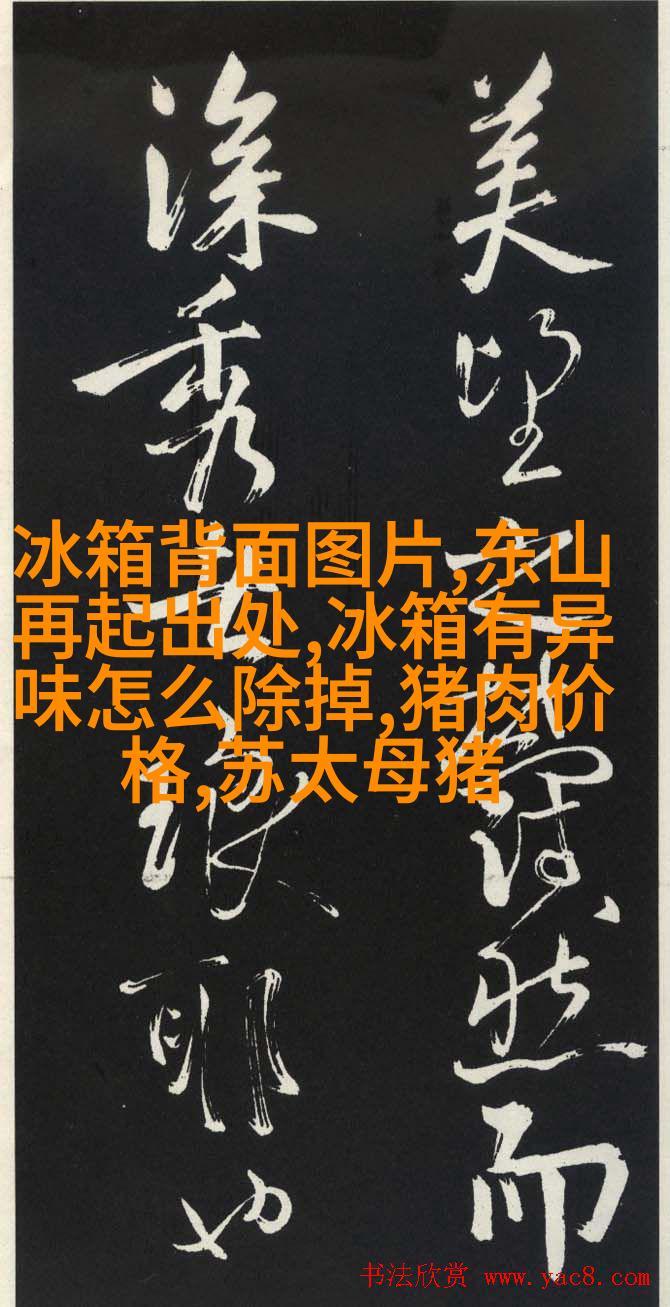 美望之蔚然而
深秀者琅耶也
冰箱背面图片,东山
再起出处,冰箱有异
味怎么除掉,猪肉价
格,苏太母猪
书法欣赏 www.yac8.com